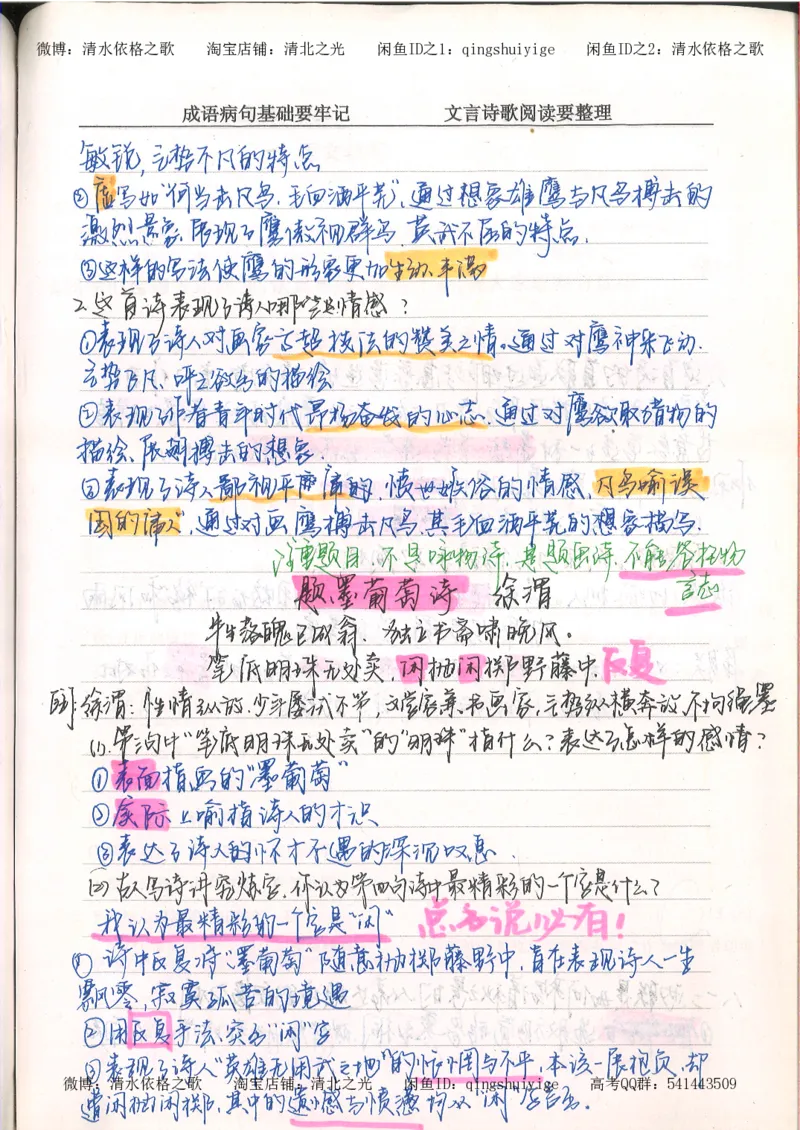 微博：清水依格之歌 淘宝店铺：清北之光 闲鱼ID之1：qingshuiyige 闲鱼ID之2：清水依格之歌
成语病句基础要牢记 文言诗歌阅读要整理
敏锐，气势不凡的特点
②虚写如“何当击凡鸟，毛血洒平芜”，通过想象雄鹰与凡鸟搏击的
激烈景象，展现了鹰傲视群鸟，英武不屈的特点．
③这样的写法使鹰的形象更加生动、丰满
2.这首诗表现了诗人哪些情感？
①表现了诗人对画家高超技法的赞美之情。通过对鹰神采飞动．
气势飞凡、呼之欲出的描绘
②表现了作者青年时代昂扬奋发的心志．通过对鹰欲取猎物的
描绘、展翅搏击的想象．
③表现了诗人鄙视平庸，愤世嫉俗的情感，凡鸟喻误
国的庸人”，通过对画鹰搏击凡鸟，其毛血洒平芜的想象描写．
注重题目，不是咏物诗，是题画诗，不能答托物
言志
题墨葡萄诗 徐渭
半生落魄已成翁，独立书斋啸晚风。
笔底明珠无处卖，闲抛闲掷野藤中．反复
徐渭：性情纵放，少年屡试不第，文学家兼书画家，气势纵横奔放，不拘绳墨
(1).第三句中“笔底明珠无处卖”的“明珠”指什么？表达了怎样的感情？
①表面指画的“墨葡萄”
②实际上喻指诗人的才识
③表达了诗人的怀才不遇的深沉叹息．
(2)古人写诗讲究炼字，你认为第四句诗中最精彩的一个字是什么？
我认为最精彩的一个字是“闲” 总分说必有！
①诗中反复将“墨葡萄”随意抛掷藤野中，旨在表现诗人一生
飘零，寂寞孤苦的境遇
②用反复手法，突出“闲”字
③表现了诗人“英雄无用武之地”的怅惘与不平．本该一展抱负，却
遭闲抛闲掷，其中的遗憾与愤懑均以“闲”字言出．
微博：清水依格之歌 淘宝店铺：清北之光 闲鱼ID之1：qingshuiyige 高考QQ群：541443509